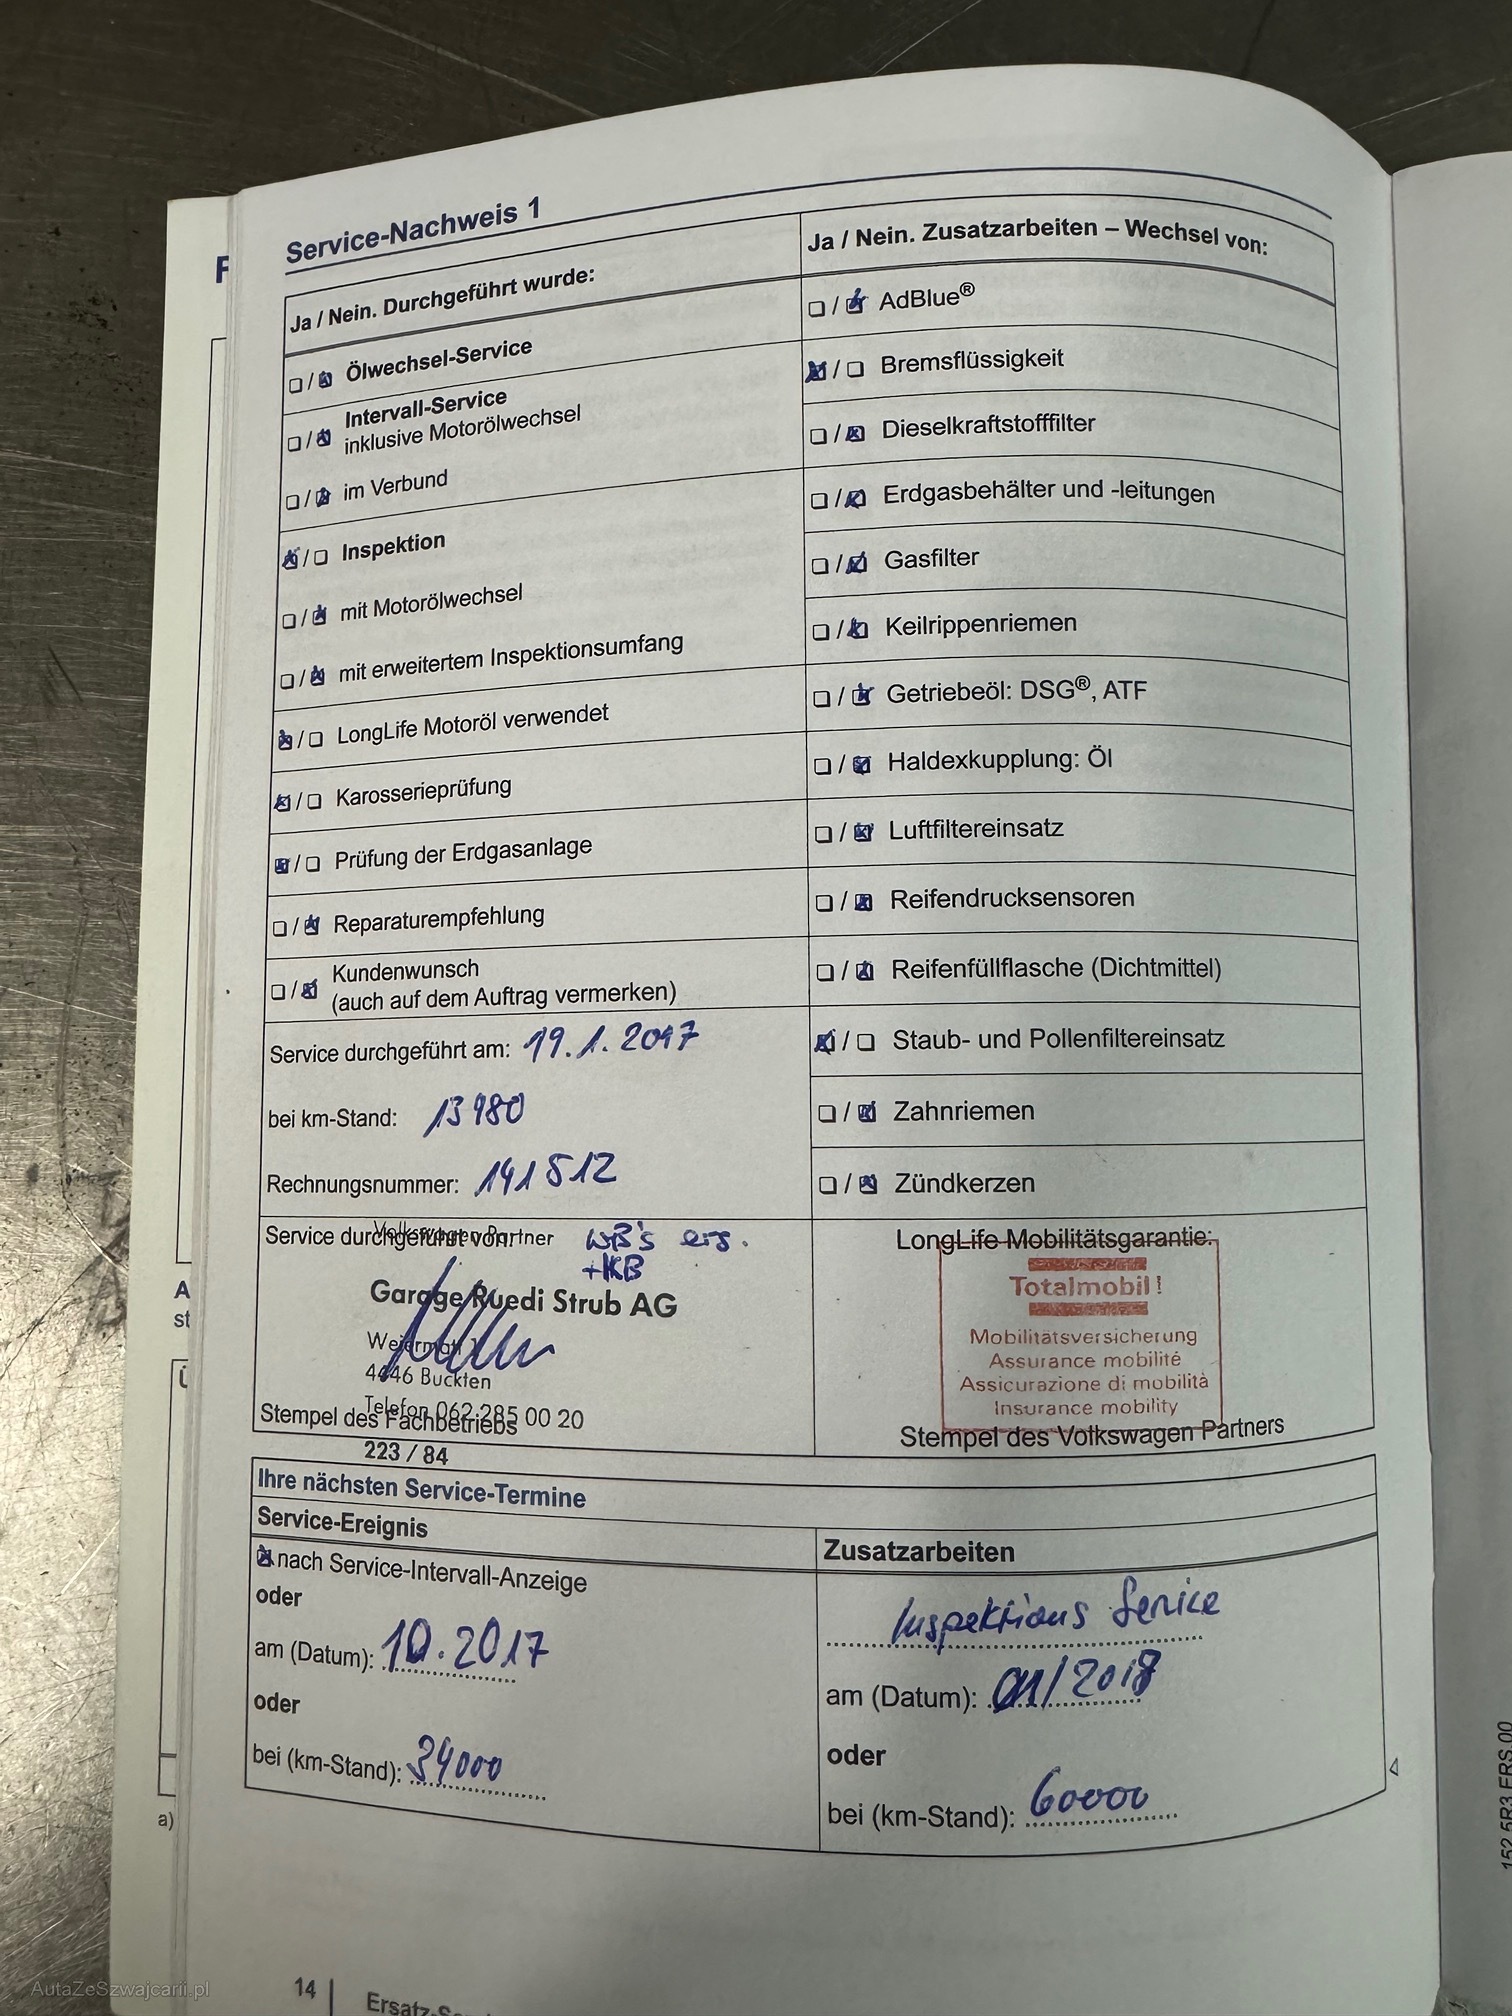 Service-Nachweis 1
Ja / Nein. Durchgeführt wurde:
Ölwechsel-Service
Intervall-Service
inklusive Motorölwechsel
im Verbund
Inspektion
mit Motorölwechsel
mit erweitertem Inspektionsumfang
LongLife Motoröl verwendet
Karosserieprüfung
Prüfung der Erdgasanlage
Reparaturempfehlung
Kundenwunsch
(auch auf dem Auftrag vermerken)
Service durchgeführt am: 19.1.2017
bei km-Stand: 13980
Rechnungsnummer: 141512
Service durchgeführt von:
Volkswagen Partner
WB's ers.
+KB
Garage Ruedi Strub AG
4446 Buckten
Telefon 062 285 00 20
Stempel des Fachbetriebs
223 / 84
Ja / Nein. Zusatzarbeiten – Wechsel von:
AdBlue®
Bremsflüssigkeit
Dieselkraftstofffilter
Erdgasbehälter und -leitungen
Gasfilter
Keilrippenriemen
Getriebeöl: DSG®, ATF
Haldexkupplung: Öl
Luftfiltereinsatz
Reifendrucksensoren
Reifenfüllflasche (Dichtmittel)
Staub- und Pollenfiltereinsatz
Zahnriemen
Zündkerzen
LongLife Mobilitätsgarantie:
Totalmobil!
Mobilitätsversicherung
Assurance mobilité
Assicurazione di mobilità
Insurance mobility
Stempel des Volkswagen Partners
Ihre nächsten Service-Termine
Service-Ereignis
nach Service-Intervall-Anzeige
oder
am (Datum): 10.2017
oder
bei (km-Stand): 34000
Zusatzarbeiten
Inspektions Service
am (Datum): 01/2018
oder
bei (km-Stand): 60000
a)
14
152.5R3.ERS.00
AutaZeSzwajcarii.pl